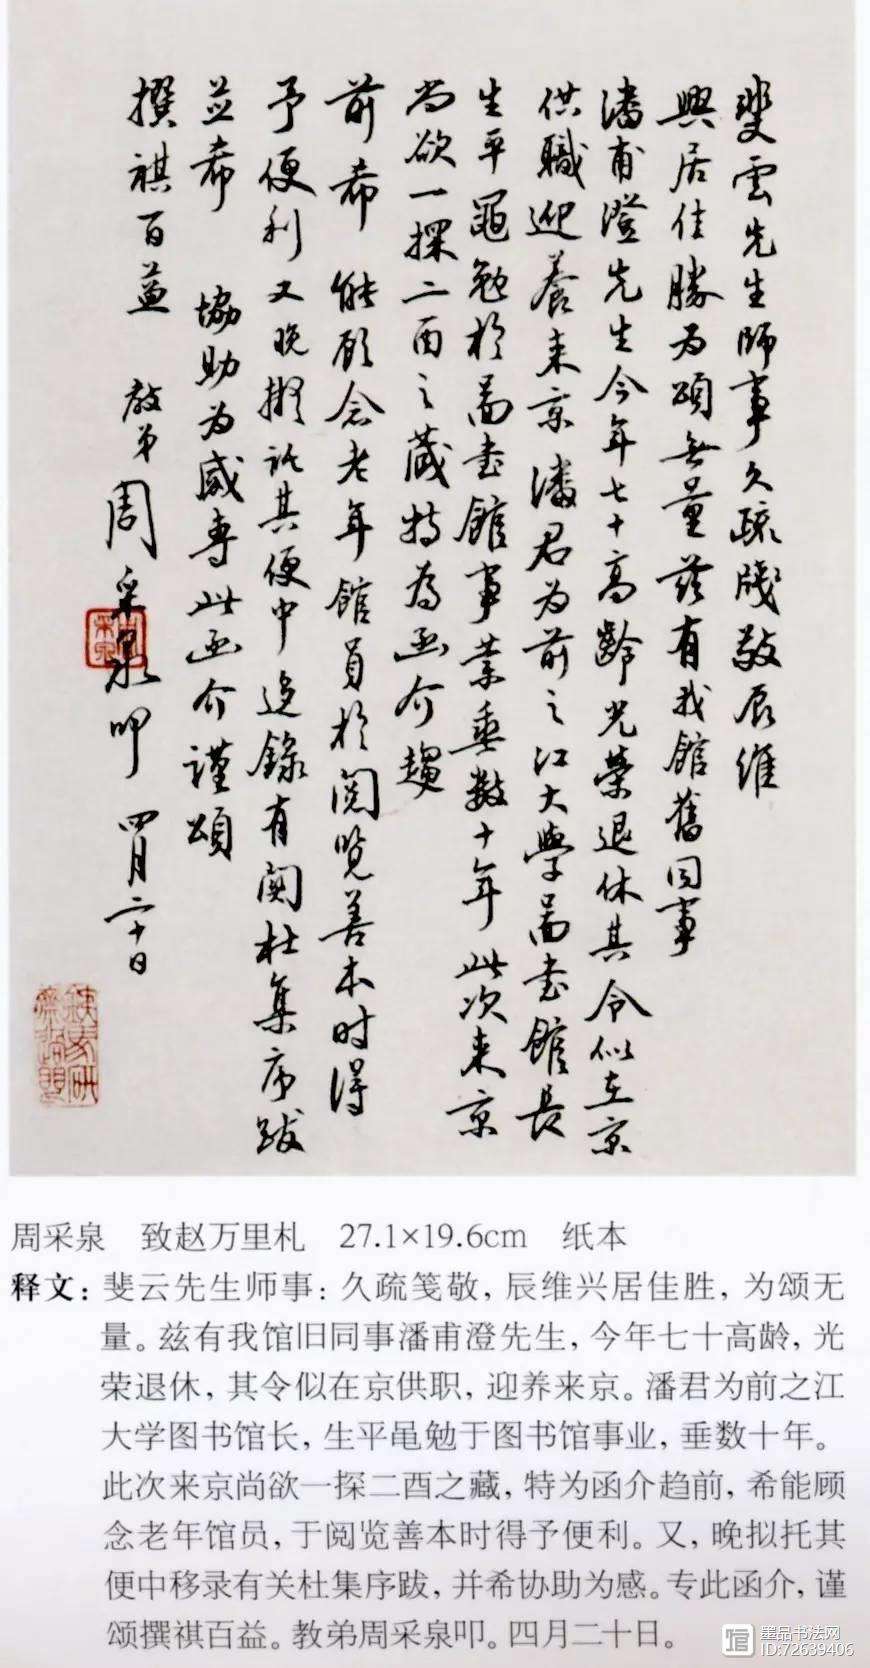 斐雲先生師事久疏牋敬辰維
興居佳勝為頌無量茲有我館舊同事
潘甫澄先生今年七十高齡光榮退休其令似在京
供職迎養來京潘君为前之江大學圖書館長
生平黽勉於圖書館事業垂數十年此次來京
尚欲一探二酉之藏特為函介趨
前希能顧念老年館員於閱覽善本时得
予便利又晚擬託其便中迻錄有関杜集序跋
並希協助为感專此函介謹頌
撰祺百益 教弟周采泉叩 四月二十日
周采泉 致赵万里札 27.1×19.6cm 纸本
释文：斐云先生师事：久疏笺敬，辰维兴居佳胜，为颂无
量。兹有我馆旧同事潘甫澄先生，今年七十高龄，光
荣退休，其令似在京供职，迎养来京。潘君为前之江
大学图书馆长，生平黾勉于图书馆事业，垂数十年。
此次来京尚欲一探二酉之藏，特为函介趋前，希能顾
念老年馆员，于阅览善本时得予便利。又，晚拟托其
便中移录有关杜集序跋，并希协助为感。专此函介，谨
颂撰祺百益。教弟周采泉叩。四月二十日。
墨品书法网
ID:72639406